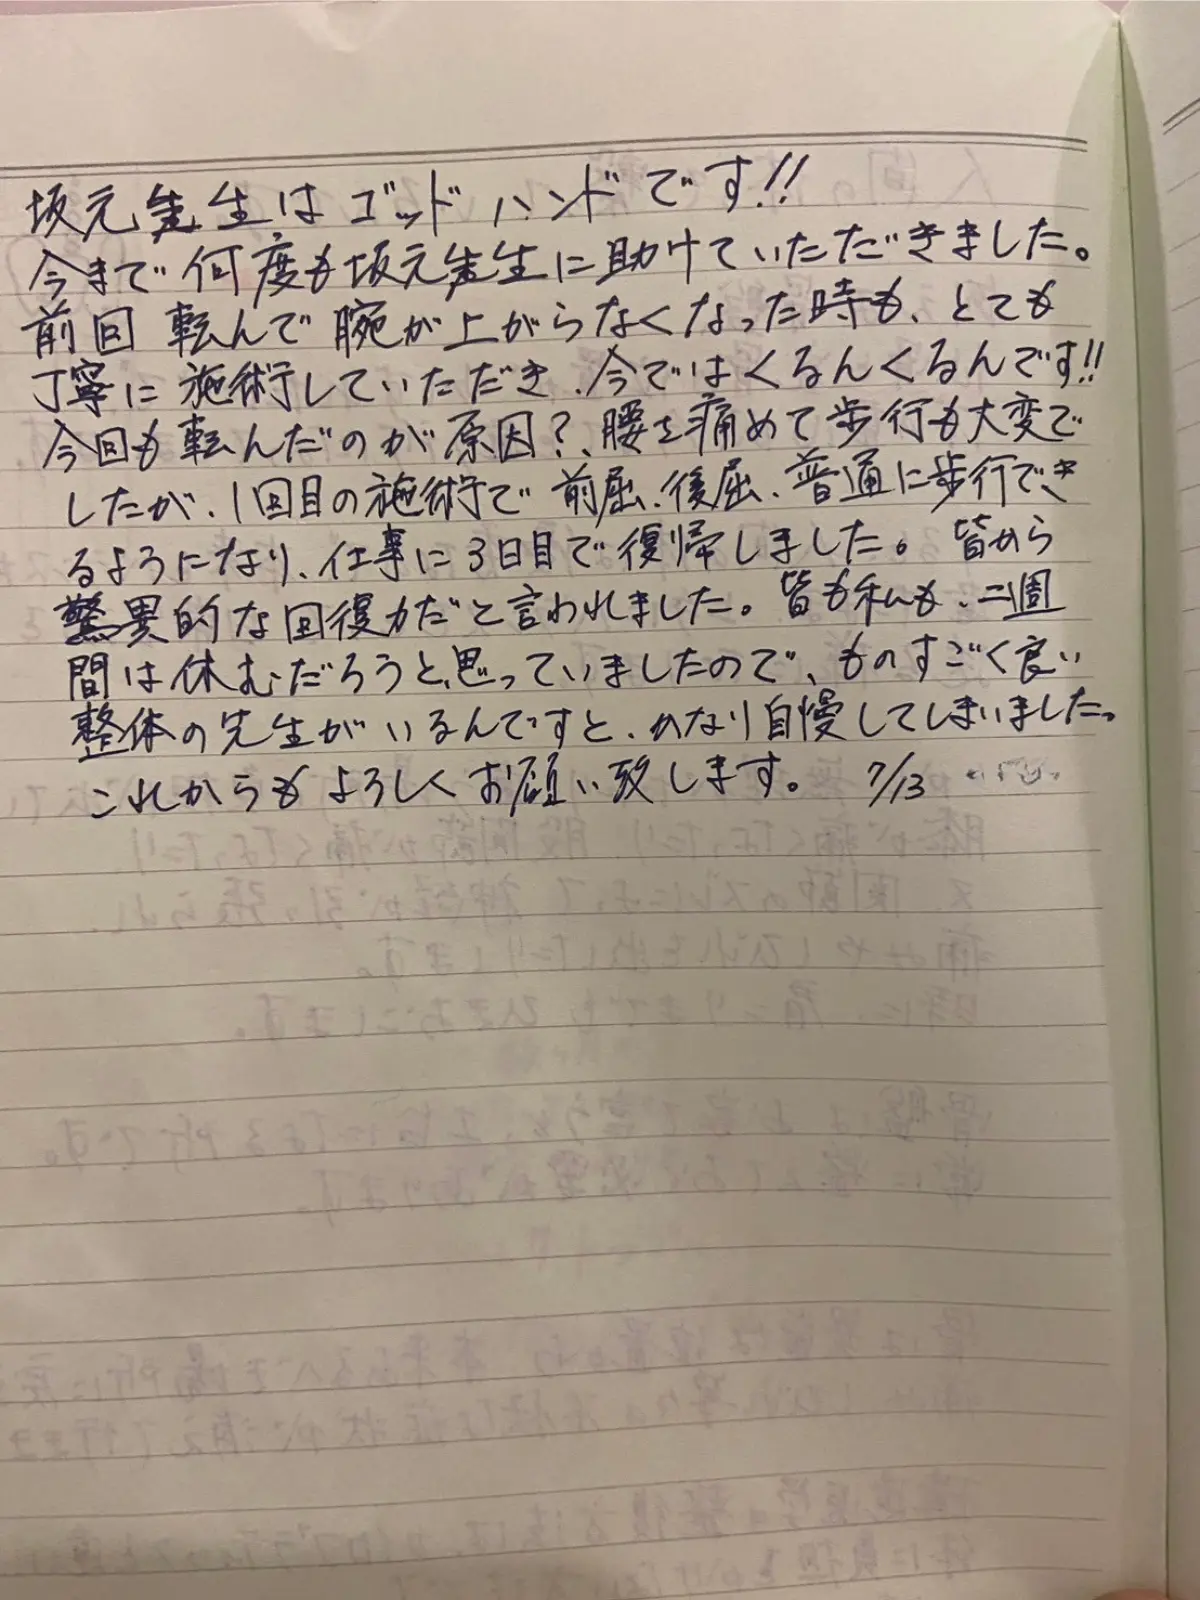 坂元先生はゴッドハンドです!!
今まで何度も坂元先生に助けていただきました。
前回転んで腕が上がらなくなった時も、とても
丁寧に施術していただき、今ではくるんくるんです!!
今回も転んだのが原因?、腰を痛めて歩行も大変で
したが、1回目の施術で前屈、後屈、普通に歩行でき
るようになり、仕事に3日目で復帰しました。 皆から
驚異的な回復力だと言われました。皆も私も、二週
間は休むだろうと、思っていましたので、ものすごく良い
整体の先生がいるんですと、かなり自慢してしまいました。
これからもよろしくお願い致します。 7/13